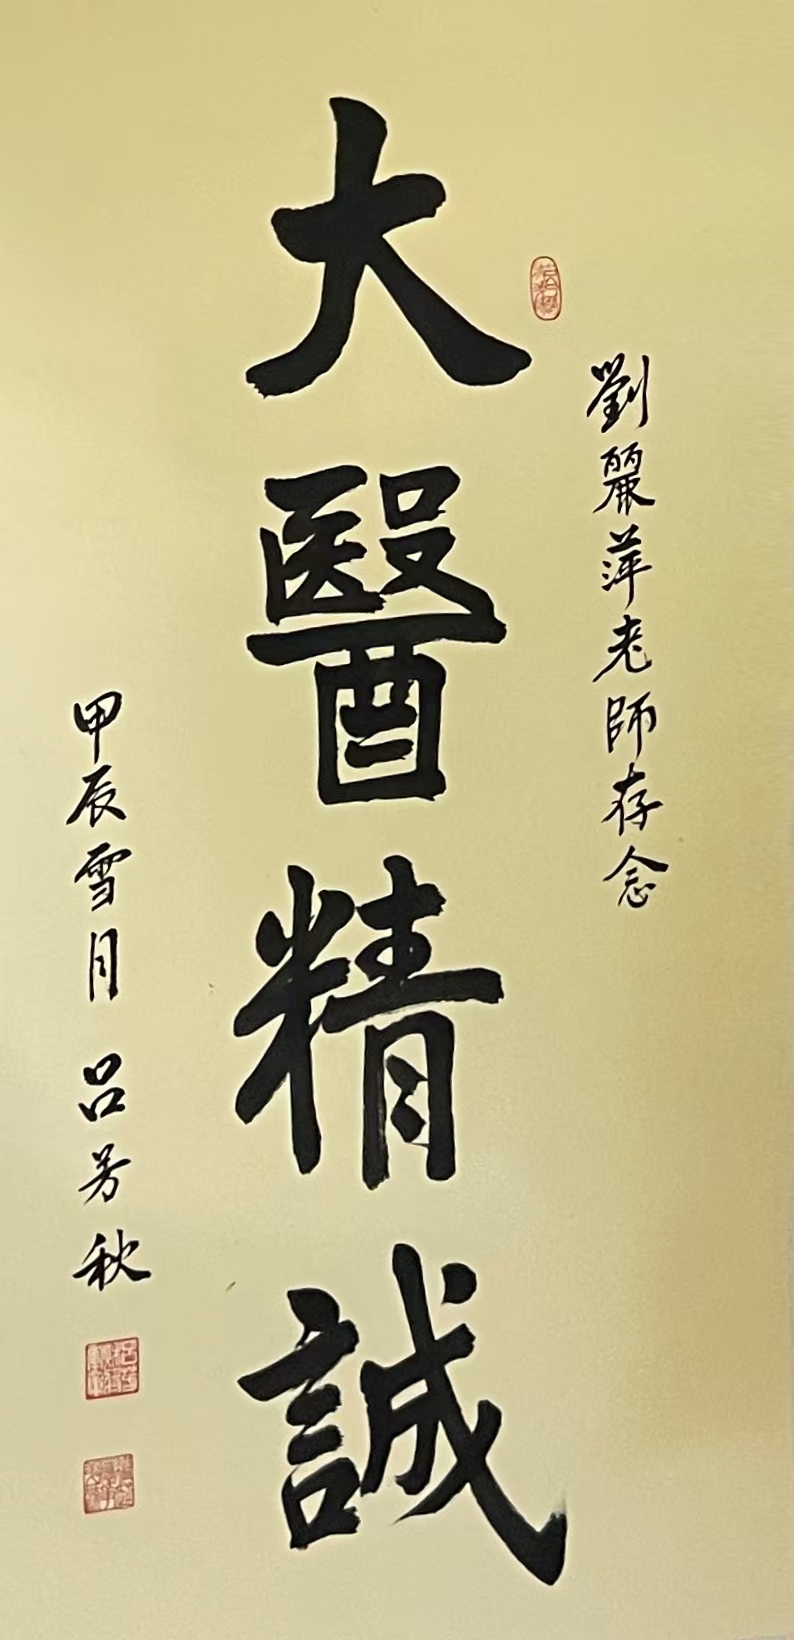 劉麗萍老師存念
大醫精誠
甲辰雪月 呂芳秋